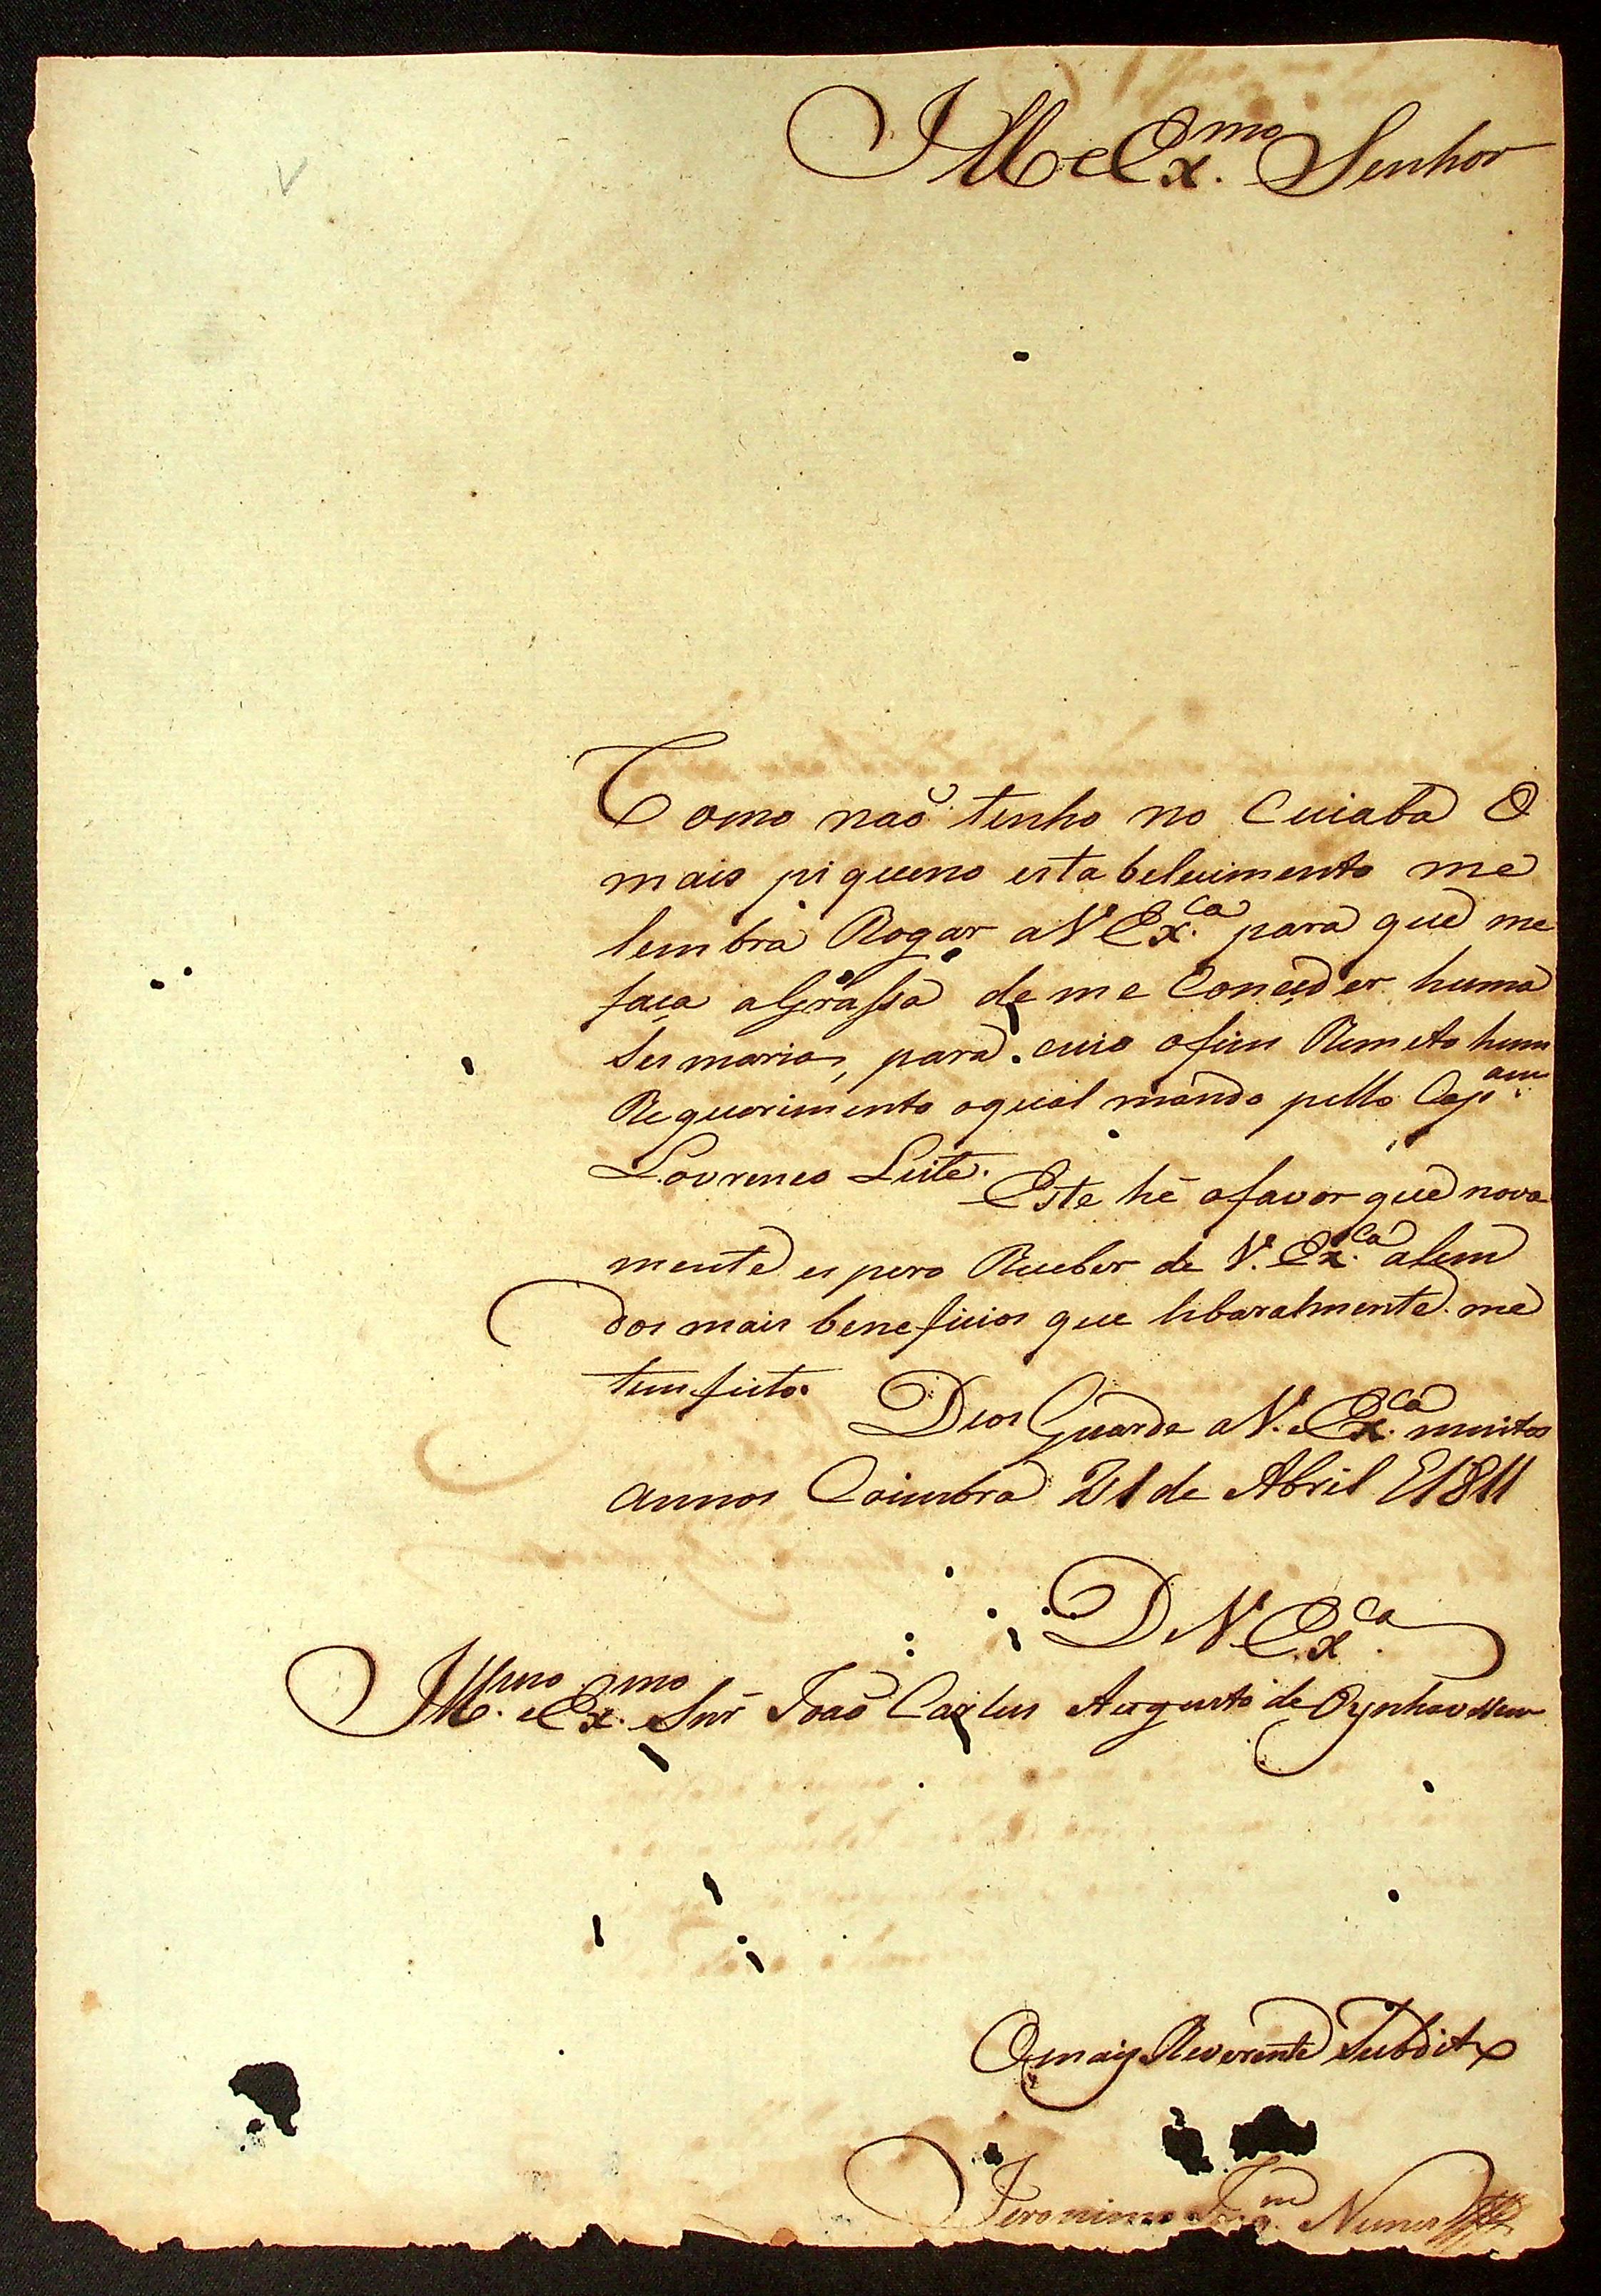 Ill e Ex.mo Senhor
Como naõ tenho no Cuiaba O
mais piqueno estabelecimento me
lembra Rogar a V Ex.ca para que me
faça a Grassa de me Conceder huma
Sesmaria, para cuio o fim Remeto hum
Requerimento o qual mando pello Cap.am
Lourenco Leite. Este hé o favor que nova
mente espero Receber de V. Ex.ca alem
dos mais beneficios que libaralmente me
tem feito. Deos Guarde a V. Ex.ca muitos
annos Coimbra 21 de Abril E 1811
D V Ex.ca
Ill.mo e Ex.mo Snr João Carlus Augusto de Oynhoussen
O mais Reverente Subdito
Jeronimo Joaq.m Nunes